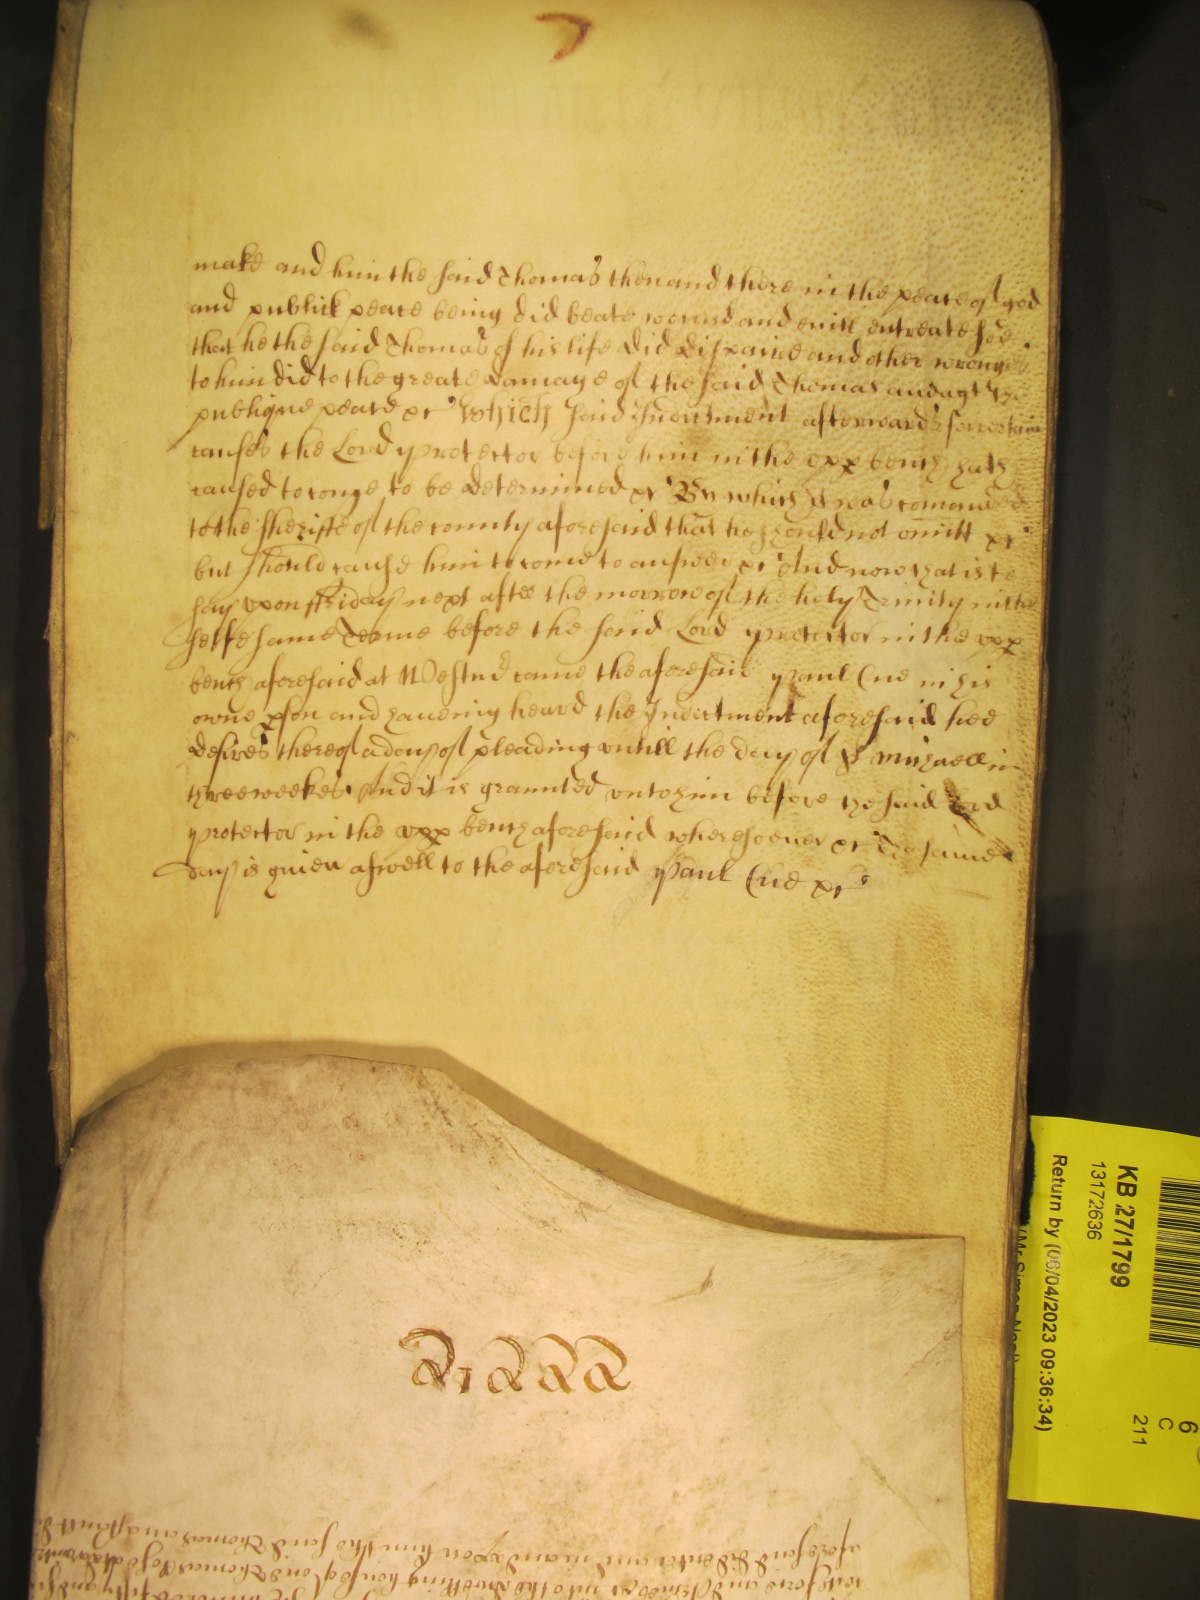 make and him the said Thomas then and there in the peace of god
and publick peace being did beate wound and evill entreate soe
that he the said Thomas of his life did dispaire and other wronges
to him did to the greate damage of the said Thomas and agt the
publique peace &c Which said Indictment afterwards for certain
causes the Lord protector before him in the upp bench hath
caused to come to be determined &c By which it was comanded
to the Sheriffe of the county aforesaid that he should not omitt &c
but should cause him to come to answer &c And now that is to
say upon ffriday next after the morrow of the holy Trinity in this
selfe same Terme before the said Lord protector in the upp
bench aforesaid at Westmr came the aforesaid Paul Cue in his
owne pson and haveing heard the Indictment aforesaid hee
desires thereof a day of pleading untill the day of St Michaell in
three weekes And it is graunted unto him before the said Lord
protector in the upp bench aforesaid wheresoever &c The same
day is given aswell to the aforesaid Paul Cue &c
KB 27/1799
13172636
Return by (06/04/2023 09:36:34)
6
C
211
aforesaid did enter and in and upon him the said Thomas an assault did